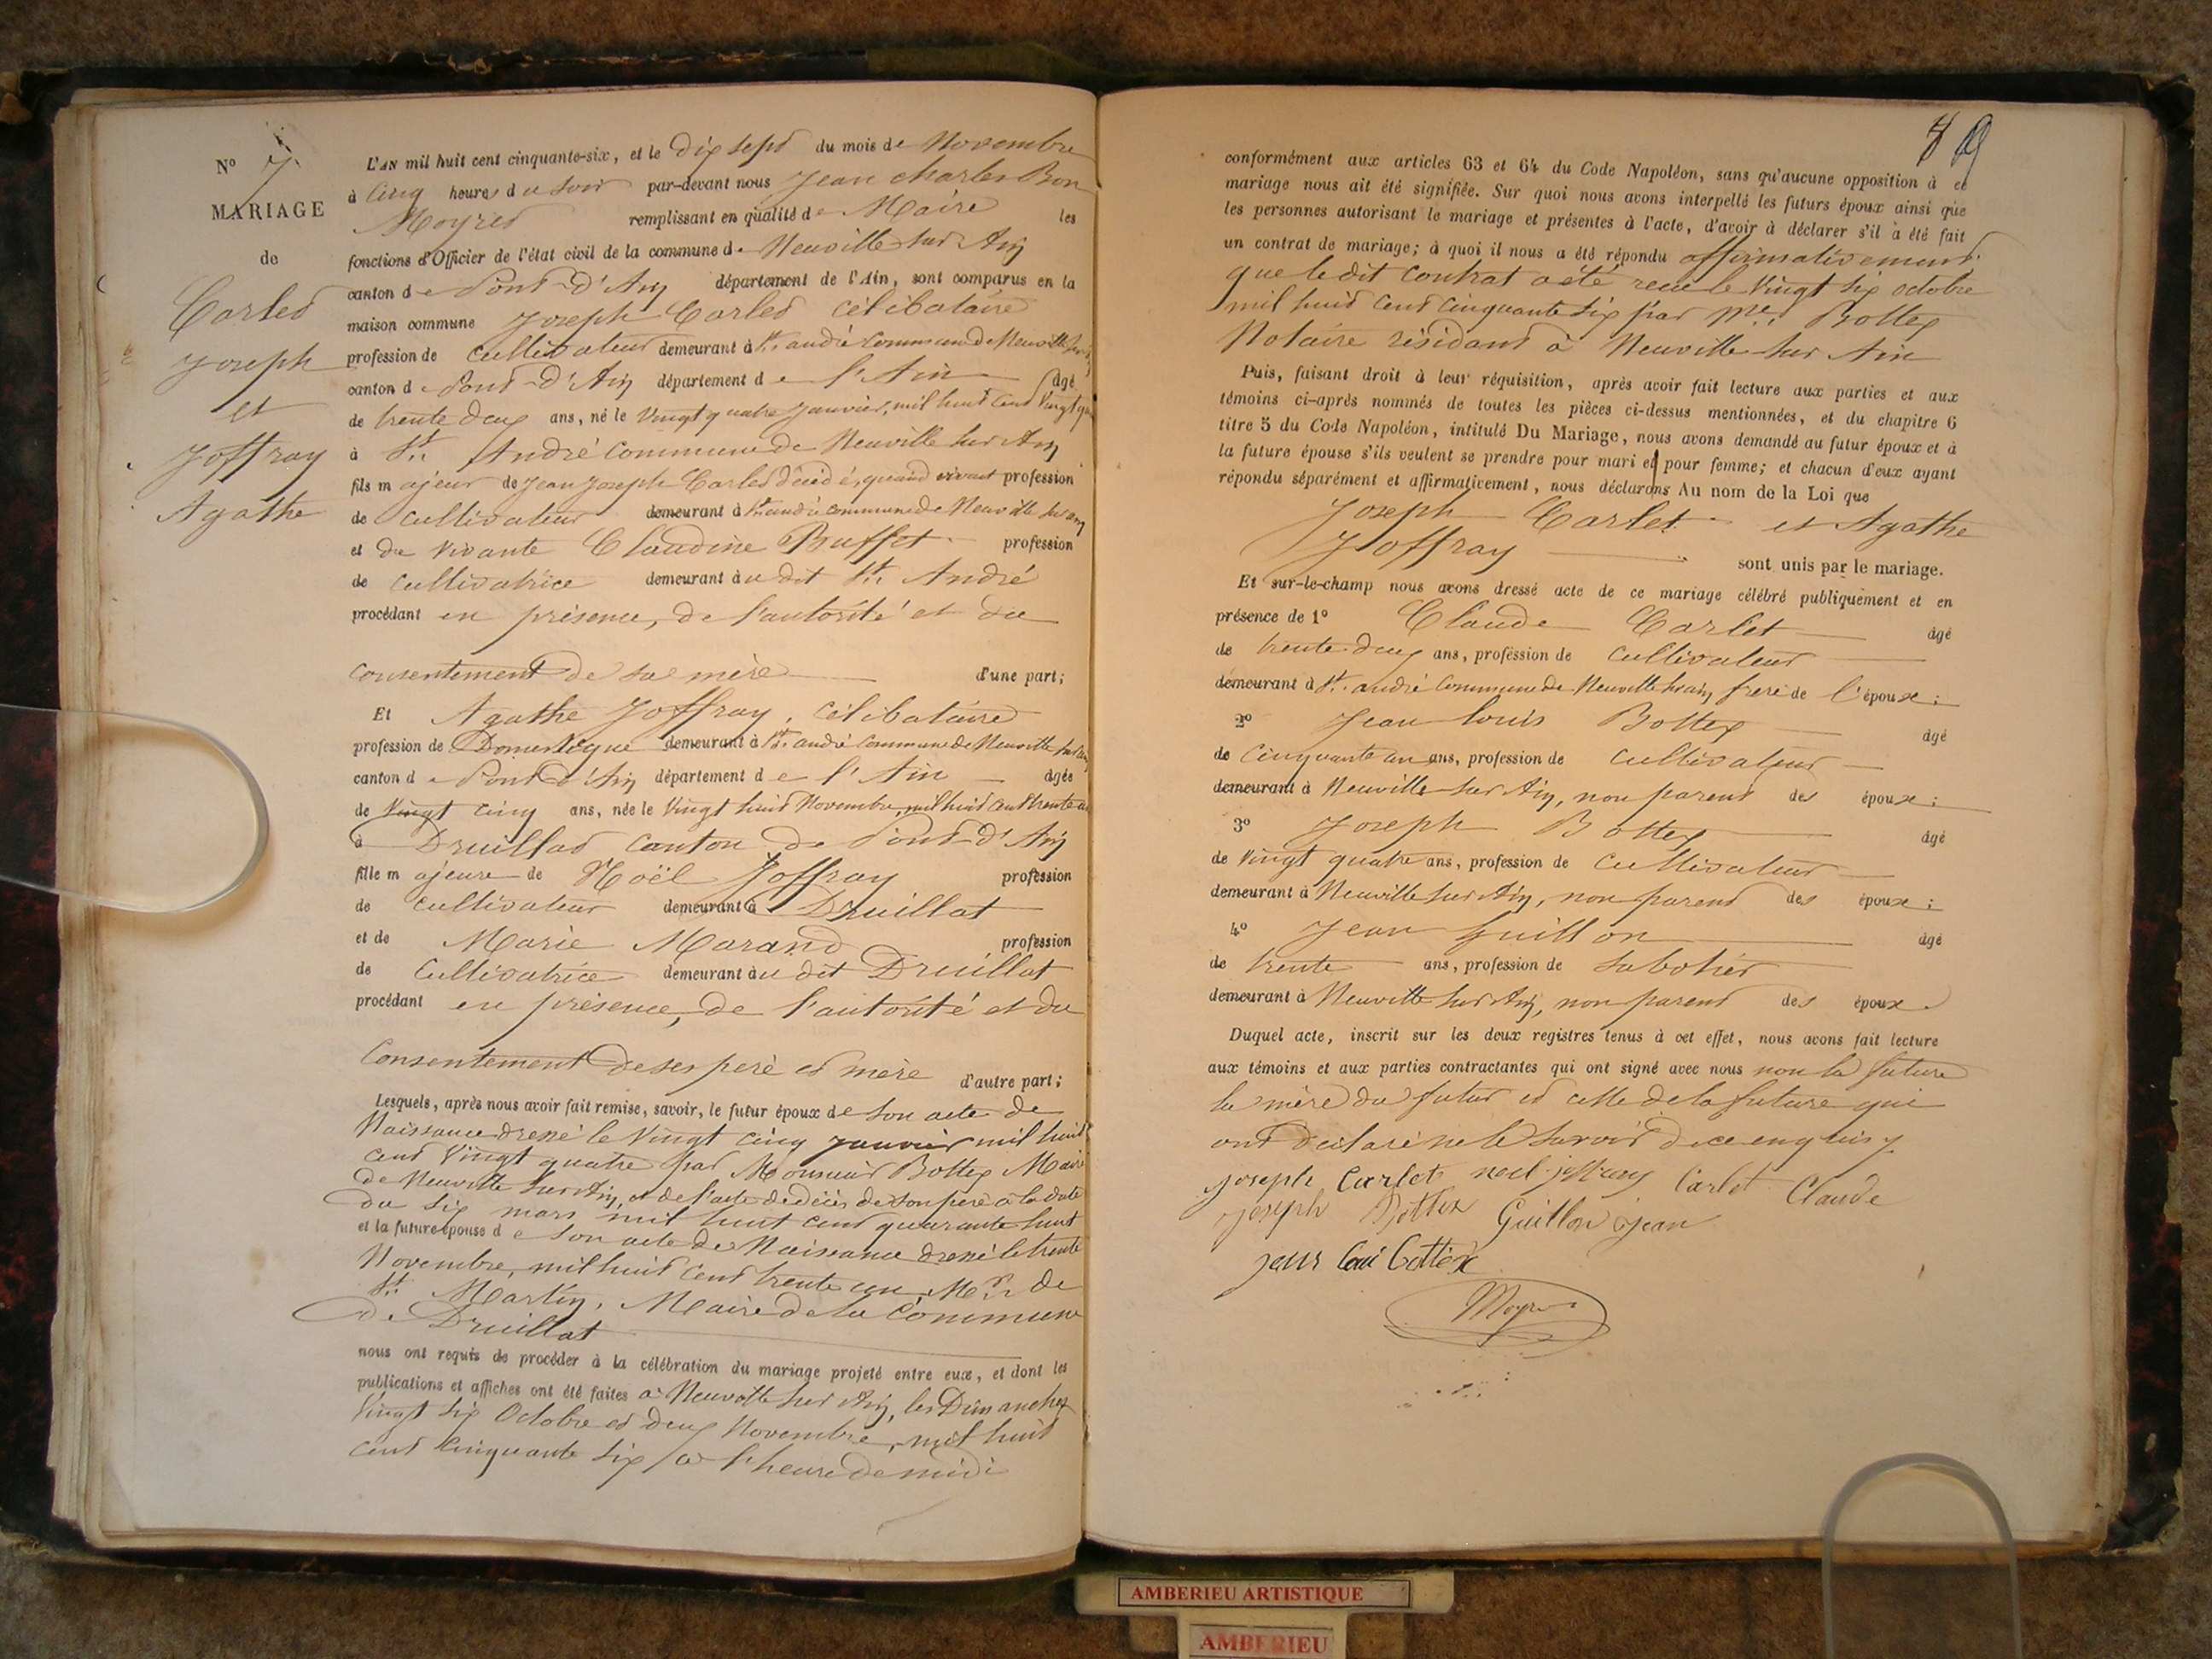 N° 7
MARIAGE
de
Carlet
Joseph
et
Joffray
Agathe
L'AN mil huit cent cinquante-six, et le dix sept du mois de Novembre
à Cinq heures du Soir par-devant nous Jean Charles Bon
Moyret remplissant en qualité de Maire les
fonctions d'Officier de l'état civil de la commune de Neuville sur Ain
canton de Pont-d'Ain département de l'Ain, sont comparus en la
maison commune Joseph Carlet célibataire
profession de cultivateur demeurant à St. andré Commune de Neuville sur ain
canton de Pont-d'Ain département de l'Ain âgé
de trente deux ans, né le vingt quatre Janvier, mil huit cent vingt
à St. André Commune de Neuville sur Ain
fils majeur de Jean Joseph Carlet décédé, quand vivant profession
de cultivateur demeurant à St. andré commune de Neuville sur ain
et de vivante Claudine Buffet profession
de cultivatrice demeurant au dit St. André
procédant en présence, de l'autorité et du
consentement de sa mère d'une part;
Et Agathe Joffray, célibataire
profession de Domestique demeurant à St. andré commune de Neuville sur ain
canton de Pont d'Ain département de l'Ain âgée
de Vingt cinq ans, née le Vingt huit Novembre, mil huit cent trente un
à Druillat canton de Pont-d'Ain
fille majeure de Noël Joffray profession
de cultivateur demeurant à Druillat
et de Marie Marand profession
de Cultivatrice demeurant au dit Druillat
procédant en présence, de l'autorité et du
Consentement de ses père et mère d'autre part;
Lesquels, après nous avoir fait remise, savoir, le futur époux de son acte de
Naissance dressé le Vingt cinq janvier mil huit
cent Vingt quatre par Monsieur Bottex Maire
de Neuville sur Ain, et de l'acte de décès de son père à la date
du six mars mil huit cent quarante huit
et la future épouse de son acte de Naissance dressé le trente
Novembre, mil huit cent trente un Mr. de
St. Martin, Maire de la Commune
de Druillat
nous ont requis de procéder à la célébration du mariage projeté entre eux, et dont les
publications et affiches ont été faites à Neuville sur Ain, les Dimanches
Vingt six Octobre et deux Novembre, mil huit
cent Cinquante six à l'heure de midi
conformément aux articles 63 et 64 du Code Napoléon, sans qu'aucune opposition à ce
mariage nous ait été signifiée. Sur quoi nous avons interpellé les futurs époux ainsi que
les personnes autorisant le mariage et présentes à l'acte, d'avoir à déclarer s'il a été fait
un contrat de mariage; à quoi il nous a été répondu affirmativement
que le dit contrat a été reçu le Vingt six octobre
mil huit cent cinquante six par Me. Bottex
Notaire résidant à Neuville sur Ain
Puis, faisant droit à leur réquisition, après avoir fait lecture aux parties et aux
témoins ci-après nommés de toutes les pièces ci-dessus mentionnées, et du chapitre 6
titre 5 du Code Napoléon, intitulé Du Mariage, nous avons demandé au futur époux et à
la future épouse s'ils veulent se prendre pour mari et pour femme; et chacun d'eux ayant
répondu séparément et affirmativement, nous déclarons Au nom de la Loi que
Joseph Carlet et Agathe
Joffray sont unis par le mariage.
Et sur-le-champ nous avons dressé acte de ce mariage célébré publiquement et en
présence de 1° Claude Carlet âgé
de trente-deux ans, profession de cultivateur
demeurant à St. andré Commune de Neuville sur ain, frère de l'époux;
2° Jean louis Bottex âgé
de Cinquante un ans, profession de cultivateur
demeurant à Neuville sur Ain, non parent des époux;
3° Joseph Bottex âgé
de Vingt quatre ans, profession de Cultivateur
demeurant à Neuville sur Ain, non parent des époux;
4° Jean Guillon âgé
de trente ans, profession de Sabotier
demeurant à Neuville sur Ain, non parent des époux.
Duquel acte, inscrit sur les deux registres tenus à cet effet, nous avons fait lecture
aux témoins et aux parties contractantes qui ont signé avec nous non la future
la mère du futur et celle de la future qui
ont déclaré ne le savoir de ce enquis.
joseph Carlet noel joffray Carlet Claude
joseph Bottex Guillon jean
jean loui Bottex
Moyret
AMBERIEU ARTISTIQUE
AMBERIEU